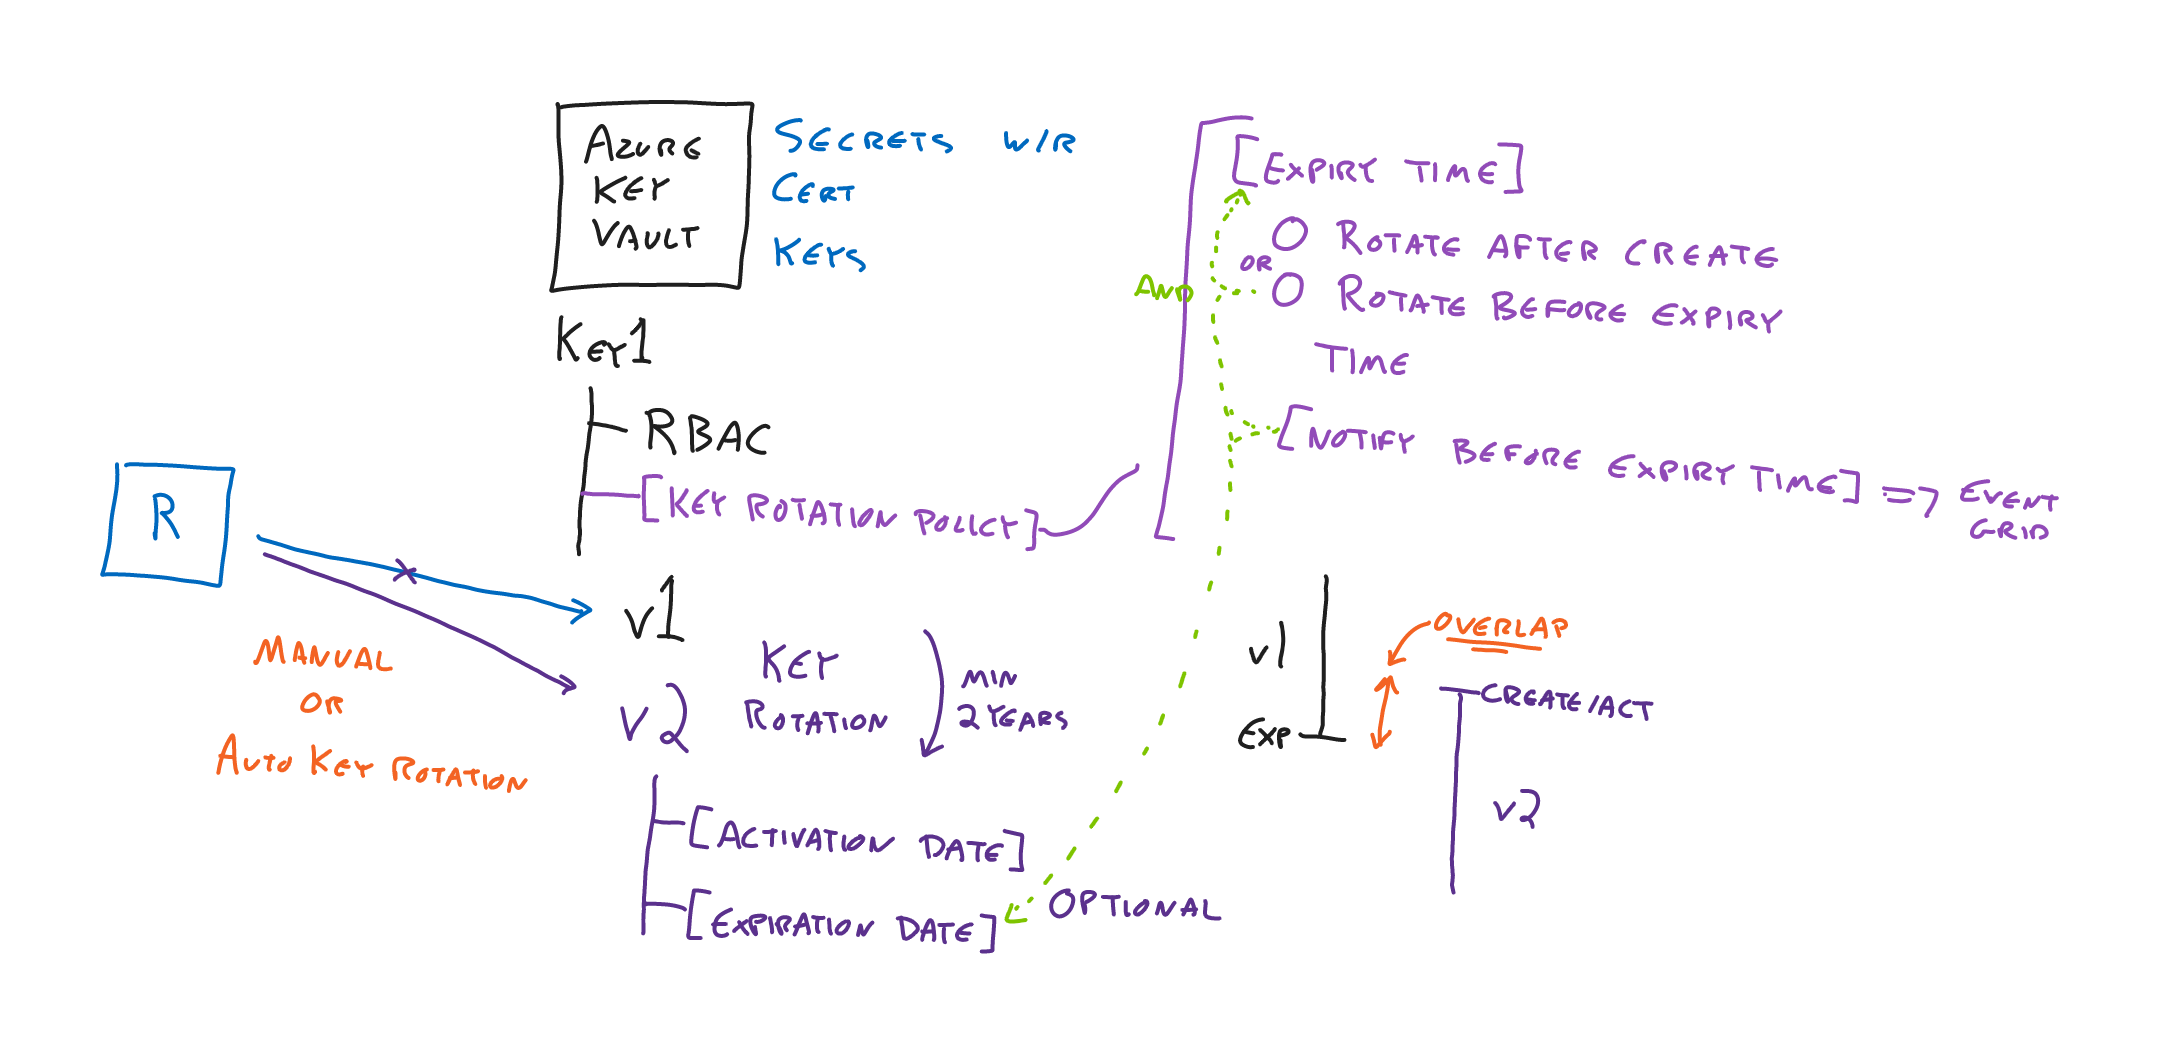 AZURE
KEY
VAULT
SECRETS W/R
CERT
KEYS
KEY1
RBAC
[KEY ROTATION POLICY]
[EXPIRY TIME]
O ROTATE AFTER CREATE
OR
AND
O ROTATE BEFORE EXPIRY
TIME
[NOTIFY BEFORE EXPIRY TIME] => EVENT
GRID
R
MANUAL
OR
AUTO KEY ROTATION
V1
V2
KEY
ROTATION
MIN
2 YEARS
[ACTIVATION DATE]
[EXPIRATION DATE]
OPTIONAL
V1
EXP
OVERLAP
CREATE/ACT
V2